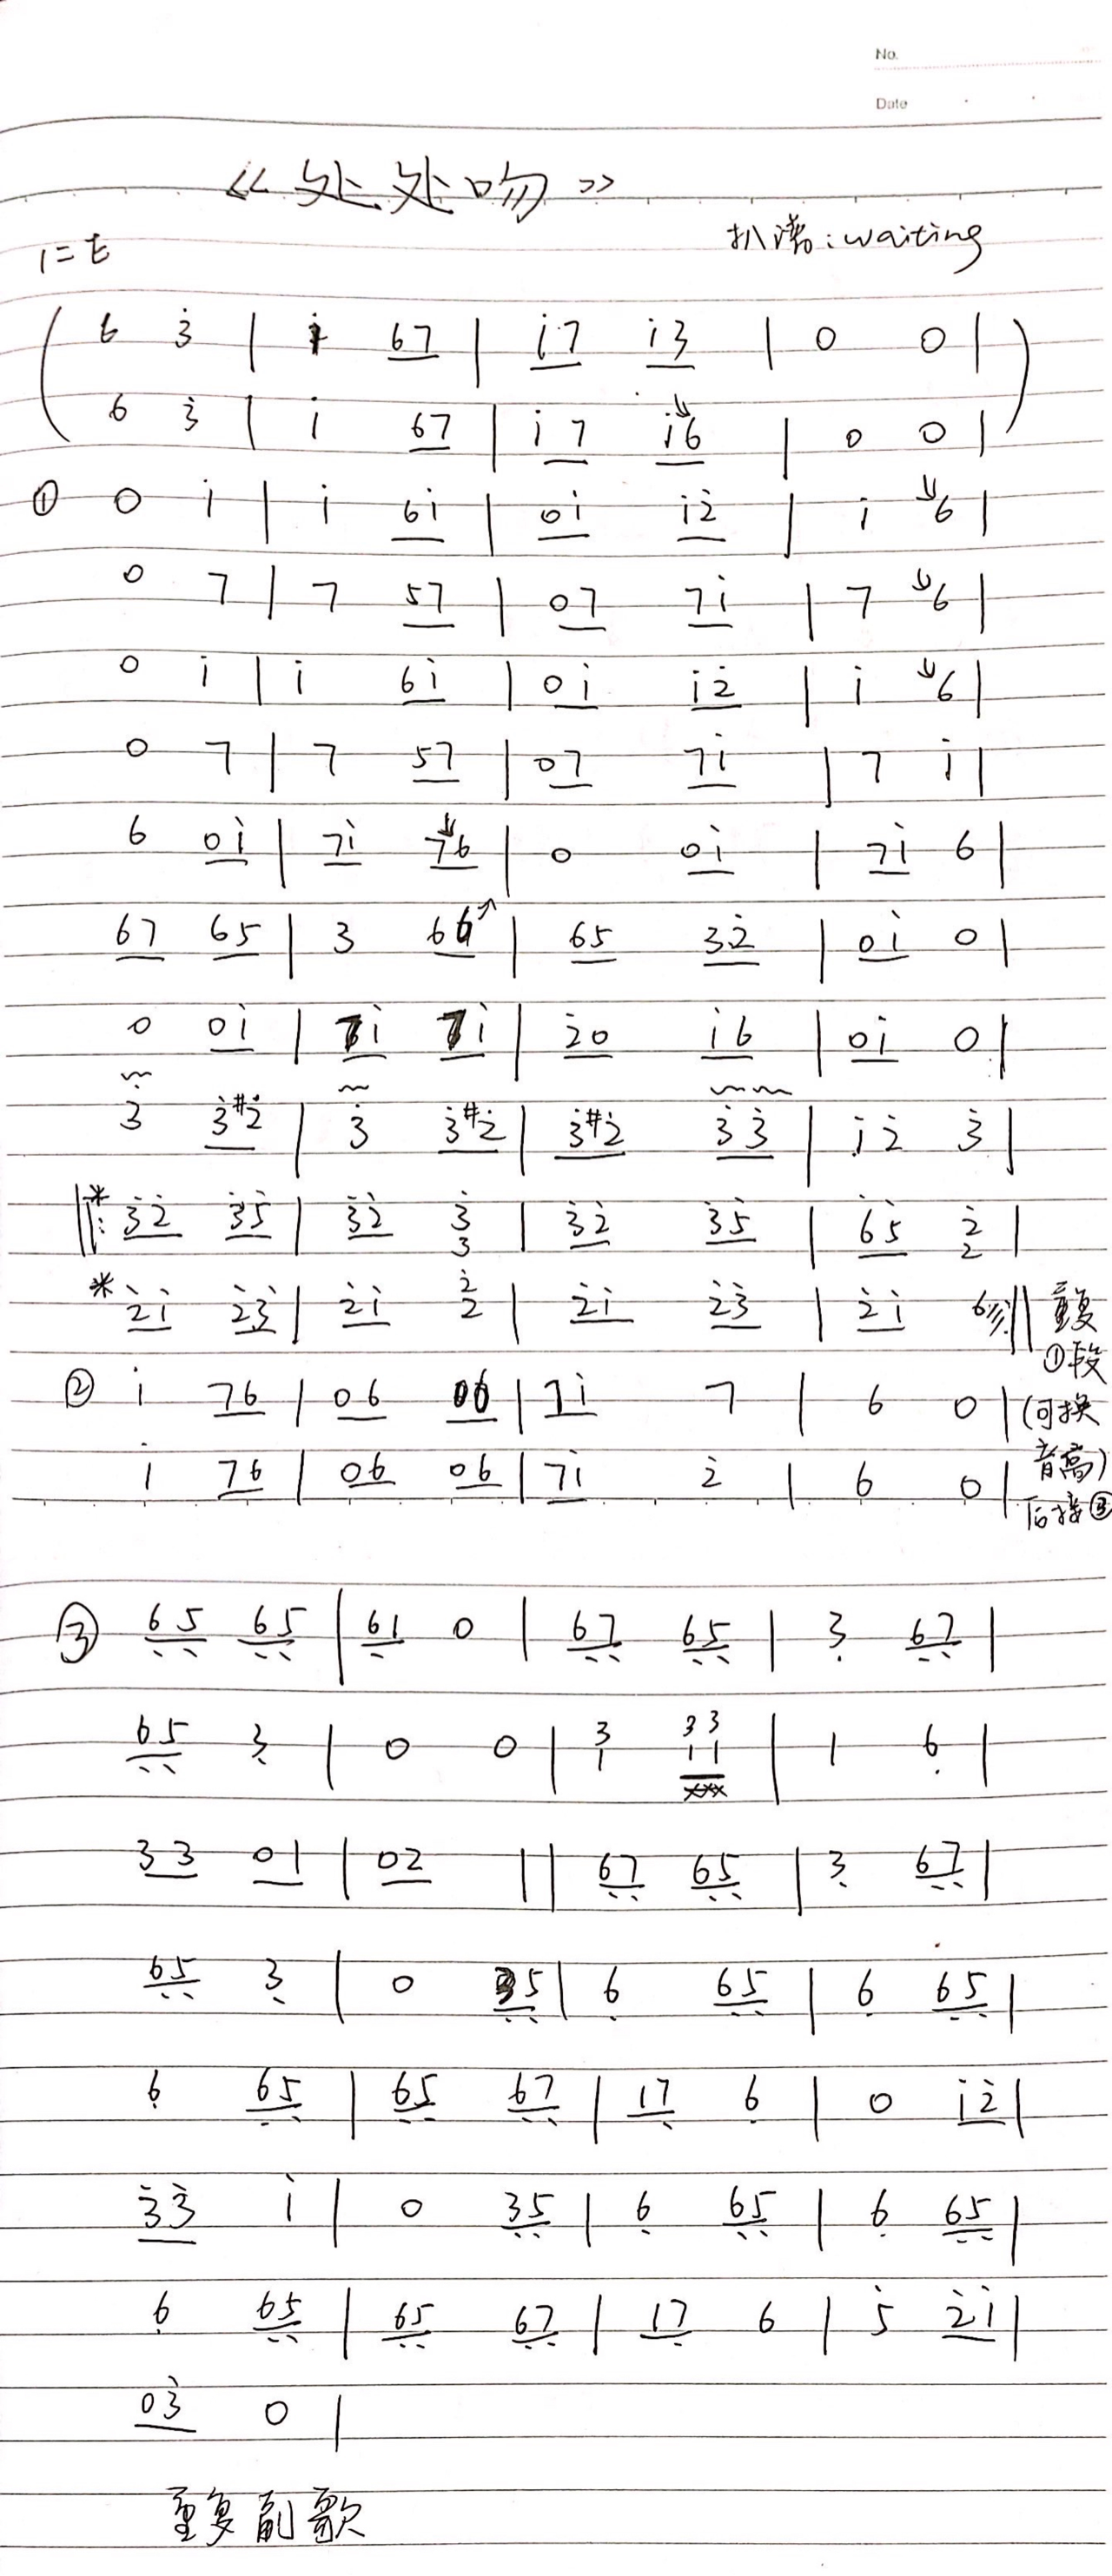 No.
Date
《处处吻》
1=E
扒谱:waiting
( 6 3̇ | i̇ 67 | i̇7 i̇3 | 0 0 | )
6 3̇ | i̇ 67 | i̇7 i̇↘6 | 0 0 |
① 0 i̇ | i̇ 6i̇ | 0i̇ i̇2̇ | i̇ ↘6 |
0 7 | 7 57 | 07 7i̇ | 7 ↘6 |
0 i̇ | i̇ 6i̇ | 0i̇ i̇2̇ | i̇ ↘6 |
0 7 | 7 57 | 07 7i̇ | 7 i̇ |
6 0i̇ | 7i̇ 7↘6 | 0 0i̇ | 7i̇ 6 |
67 65 | 3 66↗ | 65 32̇ | 0i̇ 0 |
0 0i̇ | 7i̇ 7i̇ | 2̇0 i̇6 | 0i̇ 0 |
3̇ 3̇#2̇ | 3̇ 3̇#2̇ | 3̇#2̇ 3̇3̇ | i̇2̇ 3̇ |
‖: * 3̇2̇ 3̇5̇ | 3̇2̇ 3̇/3 | 3̇2̇ 3̇5̇ | 6̇5̇ 2̇/2 |
* 2̇i̇ 2̇3̇ | 2̇i̇ 2̇/2 | 2̇i̇ 2̇3̇ | 2̇i̇ 6 :‖ 重复
①段
② i̇ 76 | 06 06 | 7i̇ 7 | 6 0 | (可换
音高)
i̇ 76 | 06 06 | 7i̇ 2̇ | 6 0 | 后接③
③ 6̣5̣ 6̣5̣ | 6̣1 0 | 6̣7̣ 6̣5̣ | 3̣ 6̣7̣ |
6̣5̣ 3̣ | 0 0 | 3/1 33/11 | 1 6̣ |
33 01 | 02 || 6̣7̣ 6̣5̣ | 3̣ 6̣7̣ |
6̣5̣ 3̣ | 0 3̣5̣ | 6̣ 6̣5̣ | 6̣ 6̣5̣ |
6̣ 6̣5̣ | 6̣5̣ 6̣7̣ | 17̣ 6̣ | 0 i̇2̇ |
3̇3̇ i̇ | 0 3̣5̣ | 6̣ 6̣5̣ | 6̣ 6̣5̣ |
6̣ 6̣5̣ | 6̣5̣ 6̣7̣ | 17̣ 6 | 5̇ 2̇i̇ |
03̇ 0 |
重复副歌